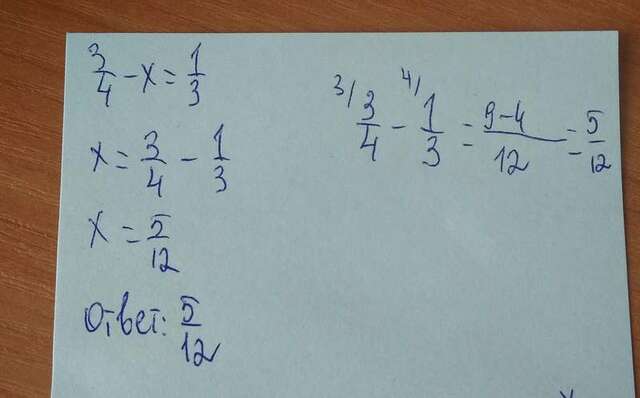 3/4 - x = 1/3
x = 3/4 - 1/3
x = 5/12
Ответ: 5/12
3/ 3/4 - 4/ 1/3 = 9-4/12 = 5/12